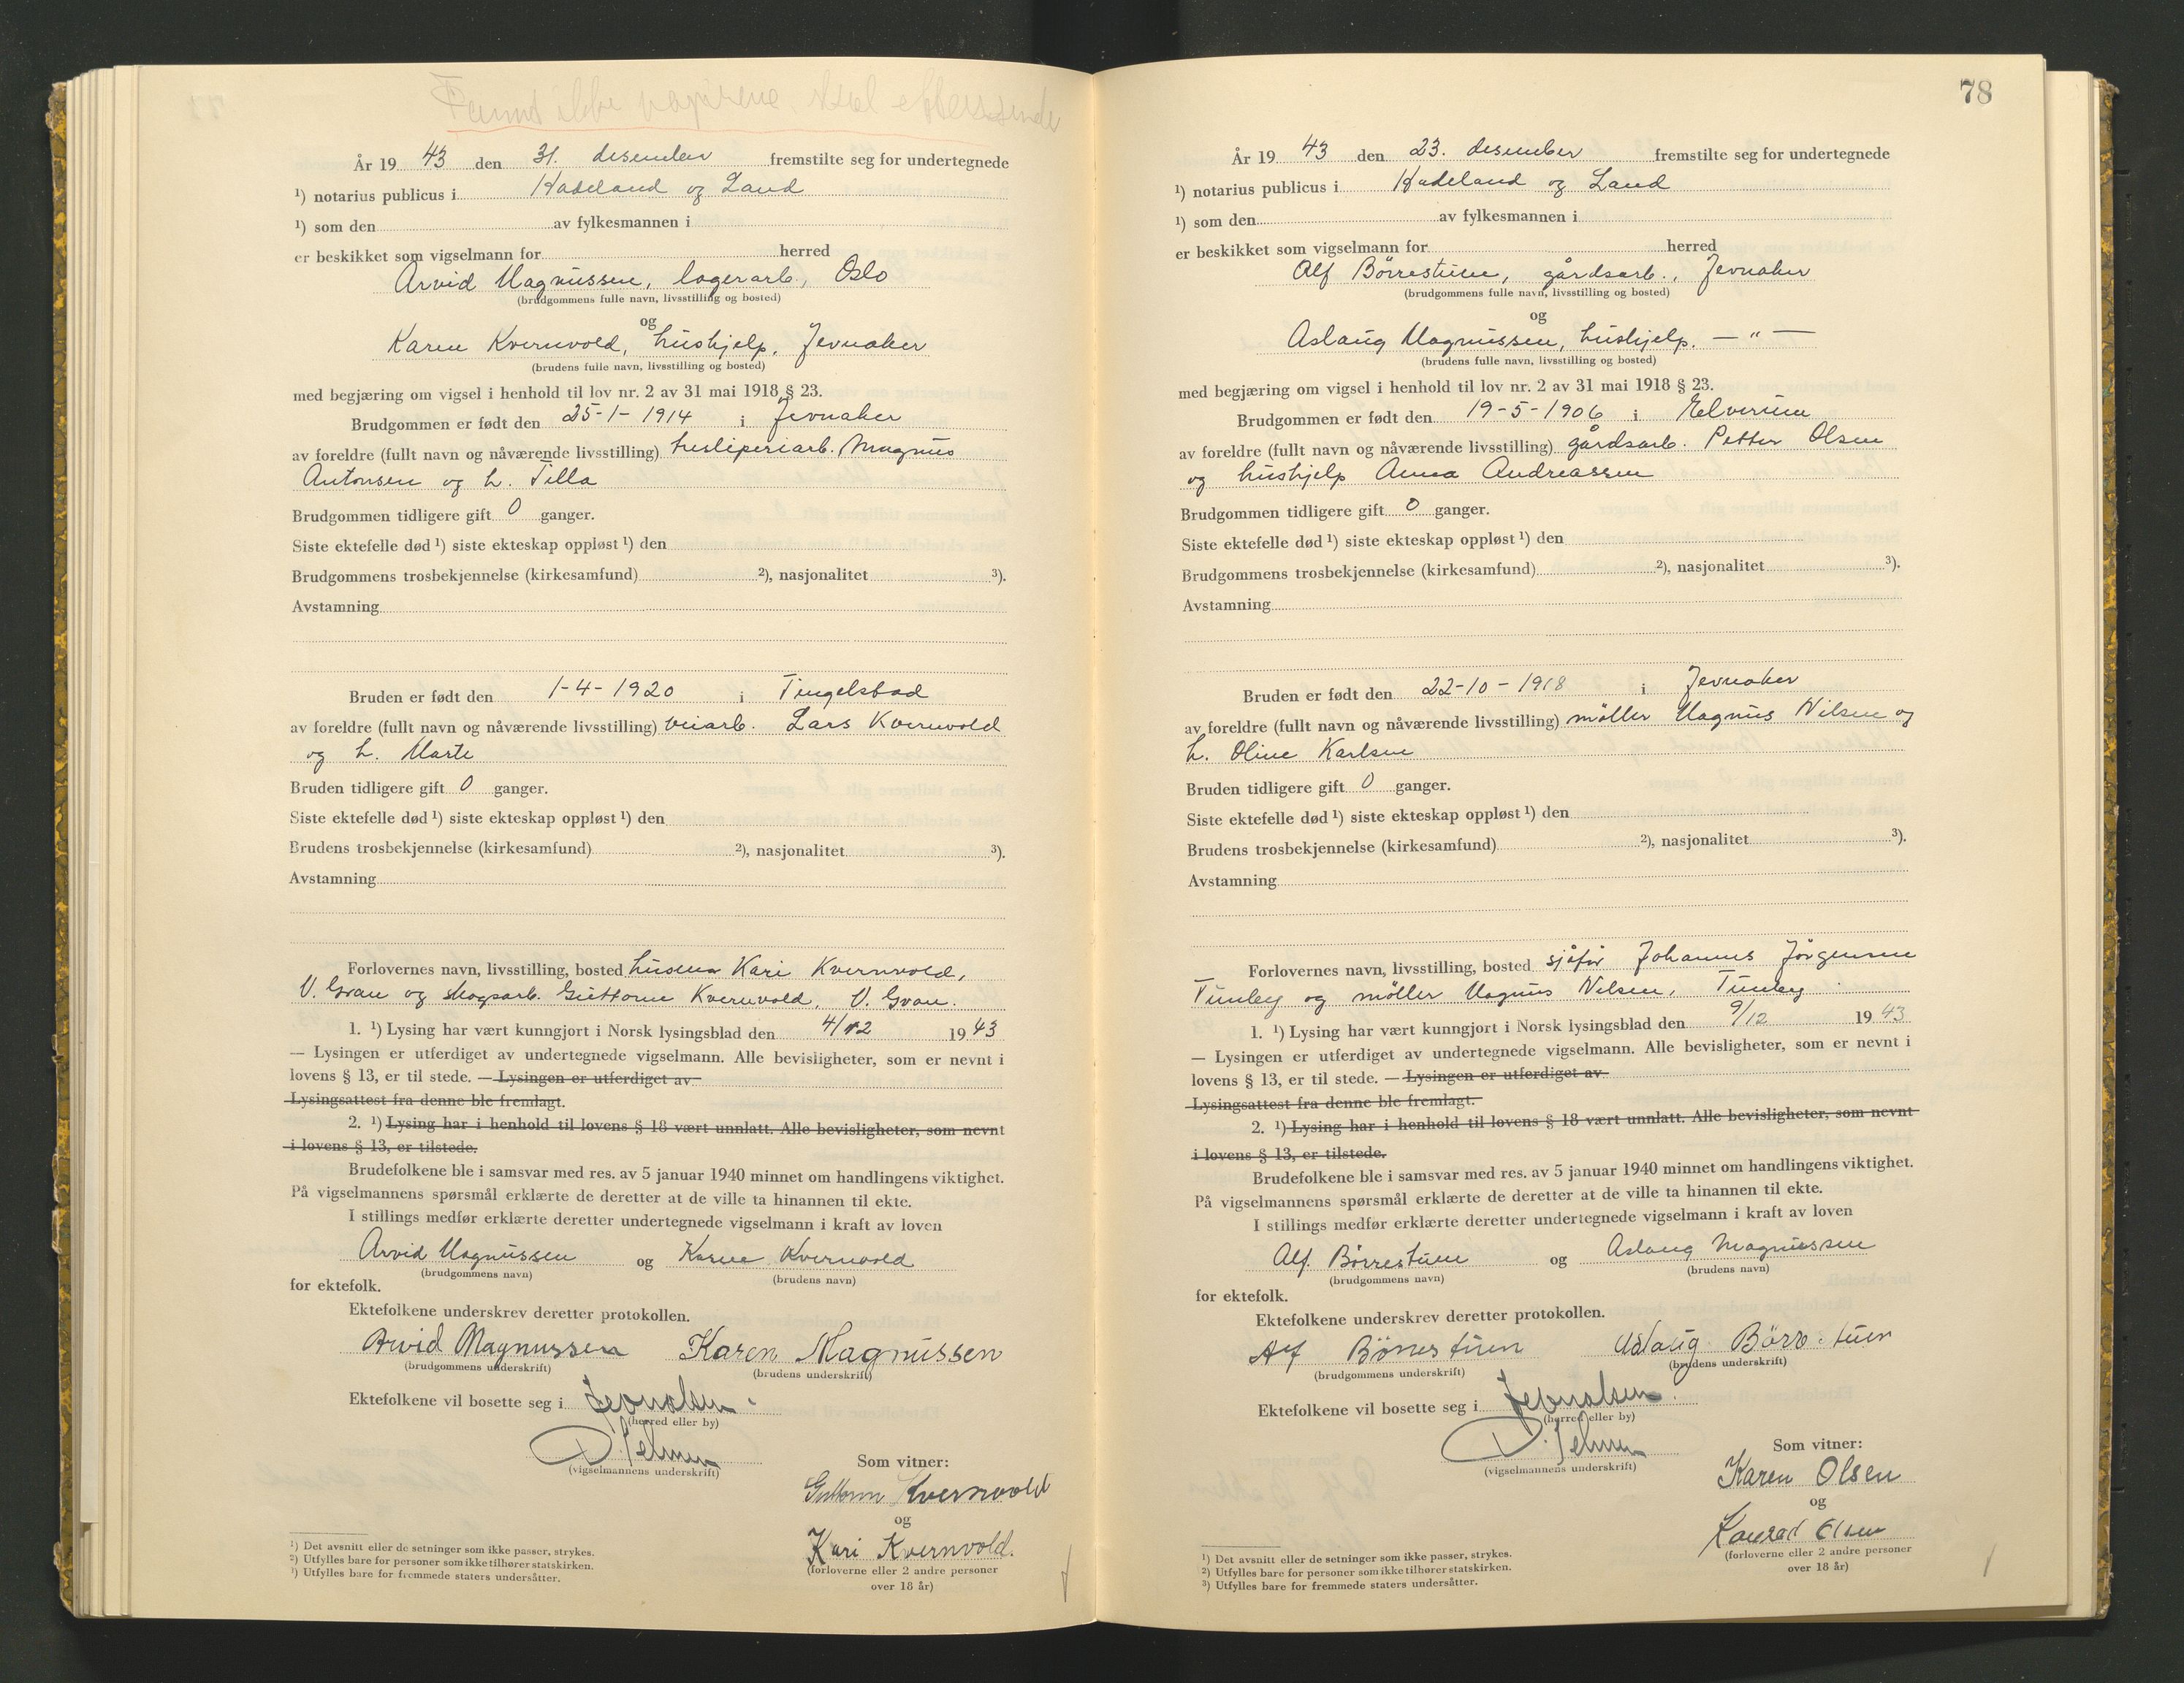 Fannt ikke papirene. skal ettersende
År 19 43 den 31. desember fremstilte seg for undertegnede
¹) notarius publicus i Hadeland og Land
¹) som den av fylkesmannen i
er beskikket som vigselmann for herred
Arvid Magnussen, lagerarb., Oslo
(brudgommens fulle navn, livsstilling og bosted)
og
Karen Kvernvold, hushjelp, Jevnaker
(brudens fulle navn, livsstilling og bosted)
med begjæring om vigsel i henhold til lov nr. 2 av 31 mai 1918 § 23.
Brudgommen er født den 25-1-1914 i Jevnaker
av foreldre (fullt navn og nåværende livsstilling) tresliperiarb. Magnus
Antonsen og h. Tilla
Brudgommen tidligere gift 0 ganger.
Siste ektefelle død ¹) siste ekteskap oppløst ¹) den
Brudgommens trosbekjennelse (kirkesamfund) ²), nasjonalitet ³).
Avstamning
Bruden er født den 1-4-1920 i Tingelstad
av foreldre (fullt navn og nåværende livsstilling) veiarb. Lars Kvernvold
og h. Marte
Bruden tidligere gift 0 ganger.
Siste ektefelle død ¹) siste ekteskap oppløst ¹) den
Brudens trosbekjennelse (kirkesamfund) ²), nasjonalitet ³).
Avstamning
Forlovernes navn, livsstilling, bosted Kari Kvernvold,
V. Gran og skogsarb. Guttorm Kvernvold, V. Gran.
1. ¹) Lysing har vært kunngjort i Norsk lysingsblad den 4/12 19 43
— Lysingen er utferdiget av undertegnede vigselmann. Alle bevisligheter, som er nevnt i
lovens § 13, er til stede. — Lysingen er utferdiget av
Lysingsattest fra denne ble fremlagt.
2. ¹) Lysing har i henhold til lovens § 18 vært unnlatt. Alle bevisligheter, som nevnt
i lovens § 13, er tilstede.
Brudefolkene ble i samsvar med res. av 5 januar 1940 minnet om handlingens viktighet.
På vigselmannens spørsmål erklærte de deretter at de ville ta hinannen til ekte.
I stillings medfør erklærte deretter undertegnede vigselmann i kraft av loven
Arvid Magnussen og Karen Kvernvold
(brudgommens navn) (brudens navn)
for ektefolk.
Ektefolkene underskrev deretter protokollen.
Arvid Magnussen Karen Magnussen
(brudgommens underskrift) (brudens underskrift)
Ektefolkene vil bosette seg i Jevnaker
(herred eller by)
(vigselmannens underskrift)
Som vitner:
Guttorm Kvernvold
og
Kari Kvernvold.
(forloverne eller 2 andre personer
over 18 år)
¹) Det avsnitt eller de setninger som ikke passer, strykes.
²) Utfylles bare for personer som ikke tilhører statskirken.
³) Utfylles bare for fremmede staters undersåtter.
78
År 19 43 den 23. desember fremstilte seg for undertegnede
¹) notarius publicus i Hadeland og Land
¹) som den av fylkesmannen i
er beskikket som vigselmann for herred
Alf Börrestuen, gårdsarb., Jevnaker
(brudgommens fulle navn, livsstilling og bosted)
og
Aslaug Magnussen, hushjelp. — " —
(brudens fulle navn, livsstilling og bosted)
med begjæring om vigsel i henhold til lov nr. 2 av 31 mai 1918 § 23.
Brudgommen er født den 19-5-1906 i Elverum
av foreldre (fullt navn og nåværende livsstilling) gårdsarb. Petter Olsen
og hushjelp Anna Andreassen
Brudgommen tidligere gift 0 ganger.
Siste ektefelle død ¹) siste ekteskap oppløst ¹) den
Brudgommens trosbekjennelse (kirkesamfund) ²), nasjonalitet ³).
Avstamning
Bruden er født den 22-10-1918 i Jevnaker
av foreldre (fullt navn og nåværende livsstilling) möller Magnus Nilsen og
h. Oline Karlsen
Bruden tidligere gift 0 ganger.
Siste ektefelle død ¹) siste ekteskap oppløst ¹) den
Brudens trosbekjennelse (kirkesamfund) ²), nasjonalitet ³).
Avstamning
Forlovernes navn, livsstilling, bosted sjåför Johannes Jörgensen
Timberg og möller Magnus Nilsen, Timberg
1. ¹) Lysing har vært kunngjort i Norsk lysingsblad den 9/12 19 43
— Lysingen er utferdiget av undertegnede vigselmann. Alle bevisligheter, som er nevnt i
lovens § 13, er til stede. — Lysingen er utferdiget av
Lysingsattest fra denne ble fremlagt.
2. ¹) Lysing har i henhold til lovens § 18 vært unnlatt. Alle bevisligheter, som nevnt
i lovens § 13, er tilstede.
Brudefolkene ble i samsvar med res. av 5 januar 1940 minnet om handlingens viktighet.
På vigselmannens spørsmål erklærte de deretter at de ville ta hinannen til ekte.
I stillings medfør erklærte deretter undertegnede vigselmann i kraft av loven
Alf Börrestuen og Aslaug Magnussen
(brudgommens navn) (brudens navn)
for ektefolk.
Ektefolkene underskrev deretter protokollen.
Alf Börrestuen Aslaug Börrestuen
(brudgommens underskrift) (brudens underskrift)
Ektefolkene vil bosette seg i Jevnaker.
(herred eller by)
(vigselmannens underskrift)
Som vitner:
Karen Olsen
og
Konrad Olsen
(forloverne eller 2 andre personer
over 18 år)
¹) Det avsnitt eller de setninger som ikke passer, strykes.
²) Utfylles bare for personer som ikke tilhører statskirken.
³) Utfylles bare for fremmede staters undersåtter.